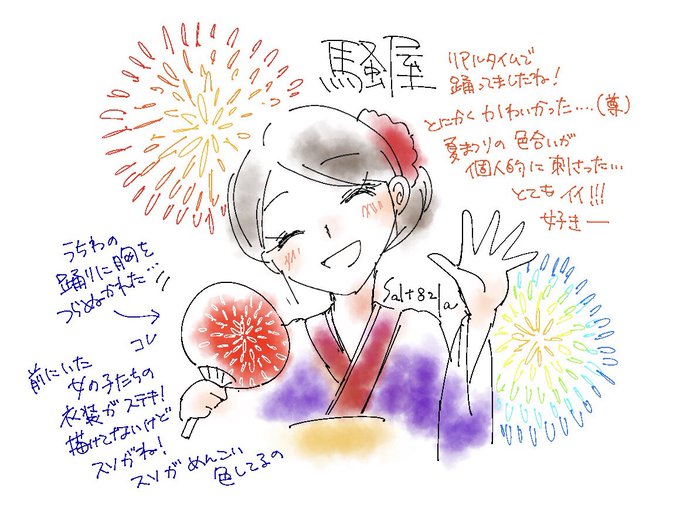 騒屋
リアルタイムで
踊ってましたね!
とにかくかわいかった…(尊)
夏まつりの色合いが
個人的に刺さった…
とてもイイ!!!
好きー
うちわの
踊りに胸を
つらぬかれた…
コレ
前にいた
女の子たちの
衣装がステキ!
描けてないけど
スソがね!
スソがめんこい
色してるの
Salt821a